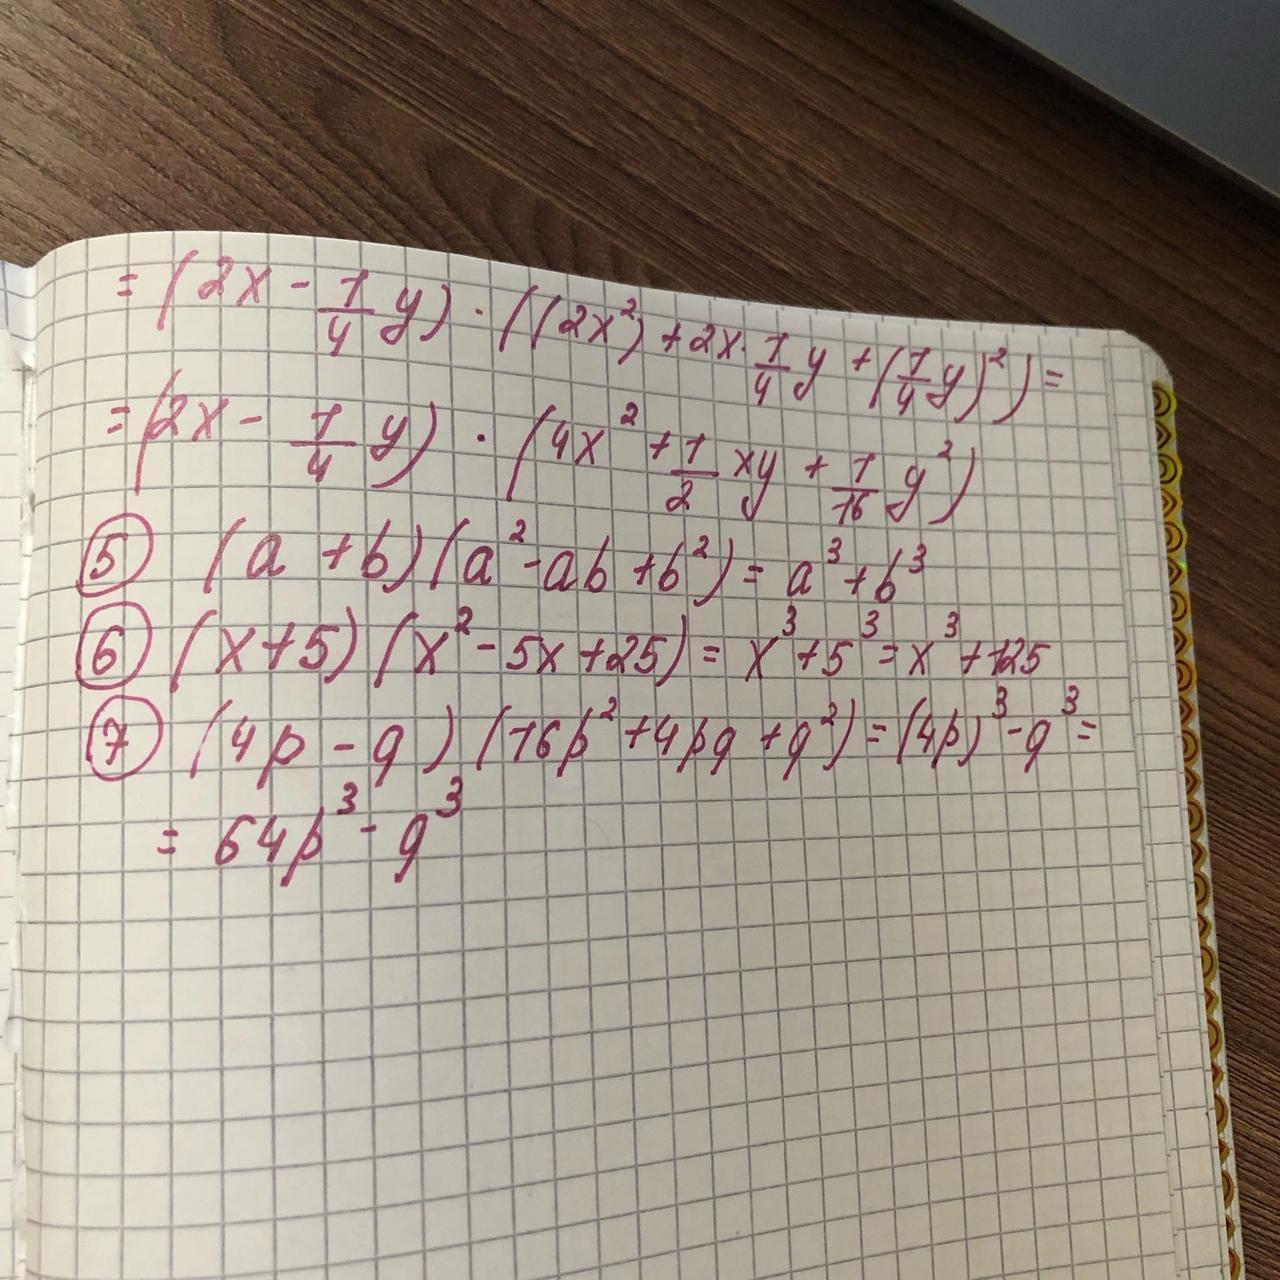 = (2x - 1/4 y) · ((2x²) + 2x · 1/4 y + (1/4 y)²) =
= (2x - 1/4 y) · (4x² + 1/2 xy + 1/16 y²)
⑤ (a + b)(a² - ab + b²) = a³ + b³
⑥ (x + 5)(x² - 5x + 25) = x³ + 5³ = x³ + 125
⑦ (4p - q)(16p² + 4pq + q²) = (4p)³ - q³ =
= 64p³ - q³